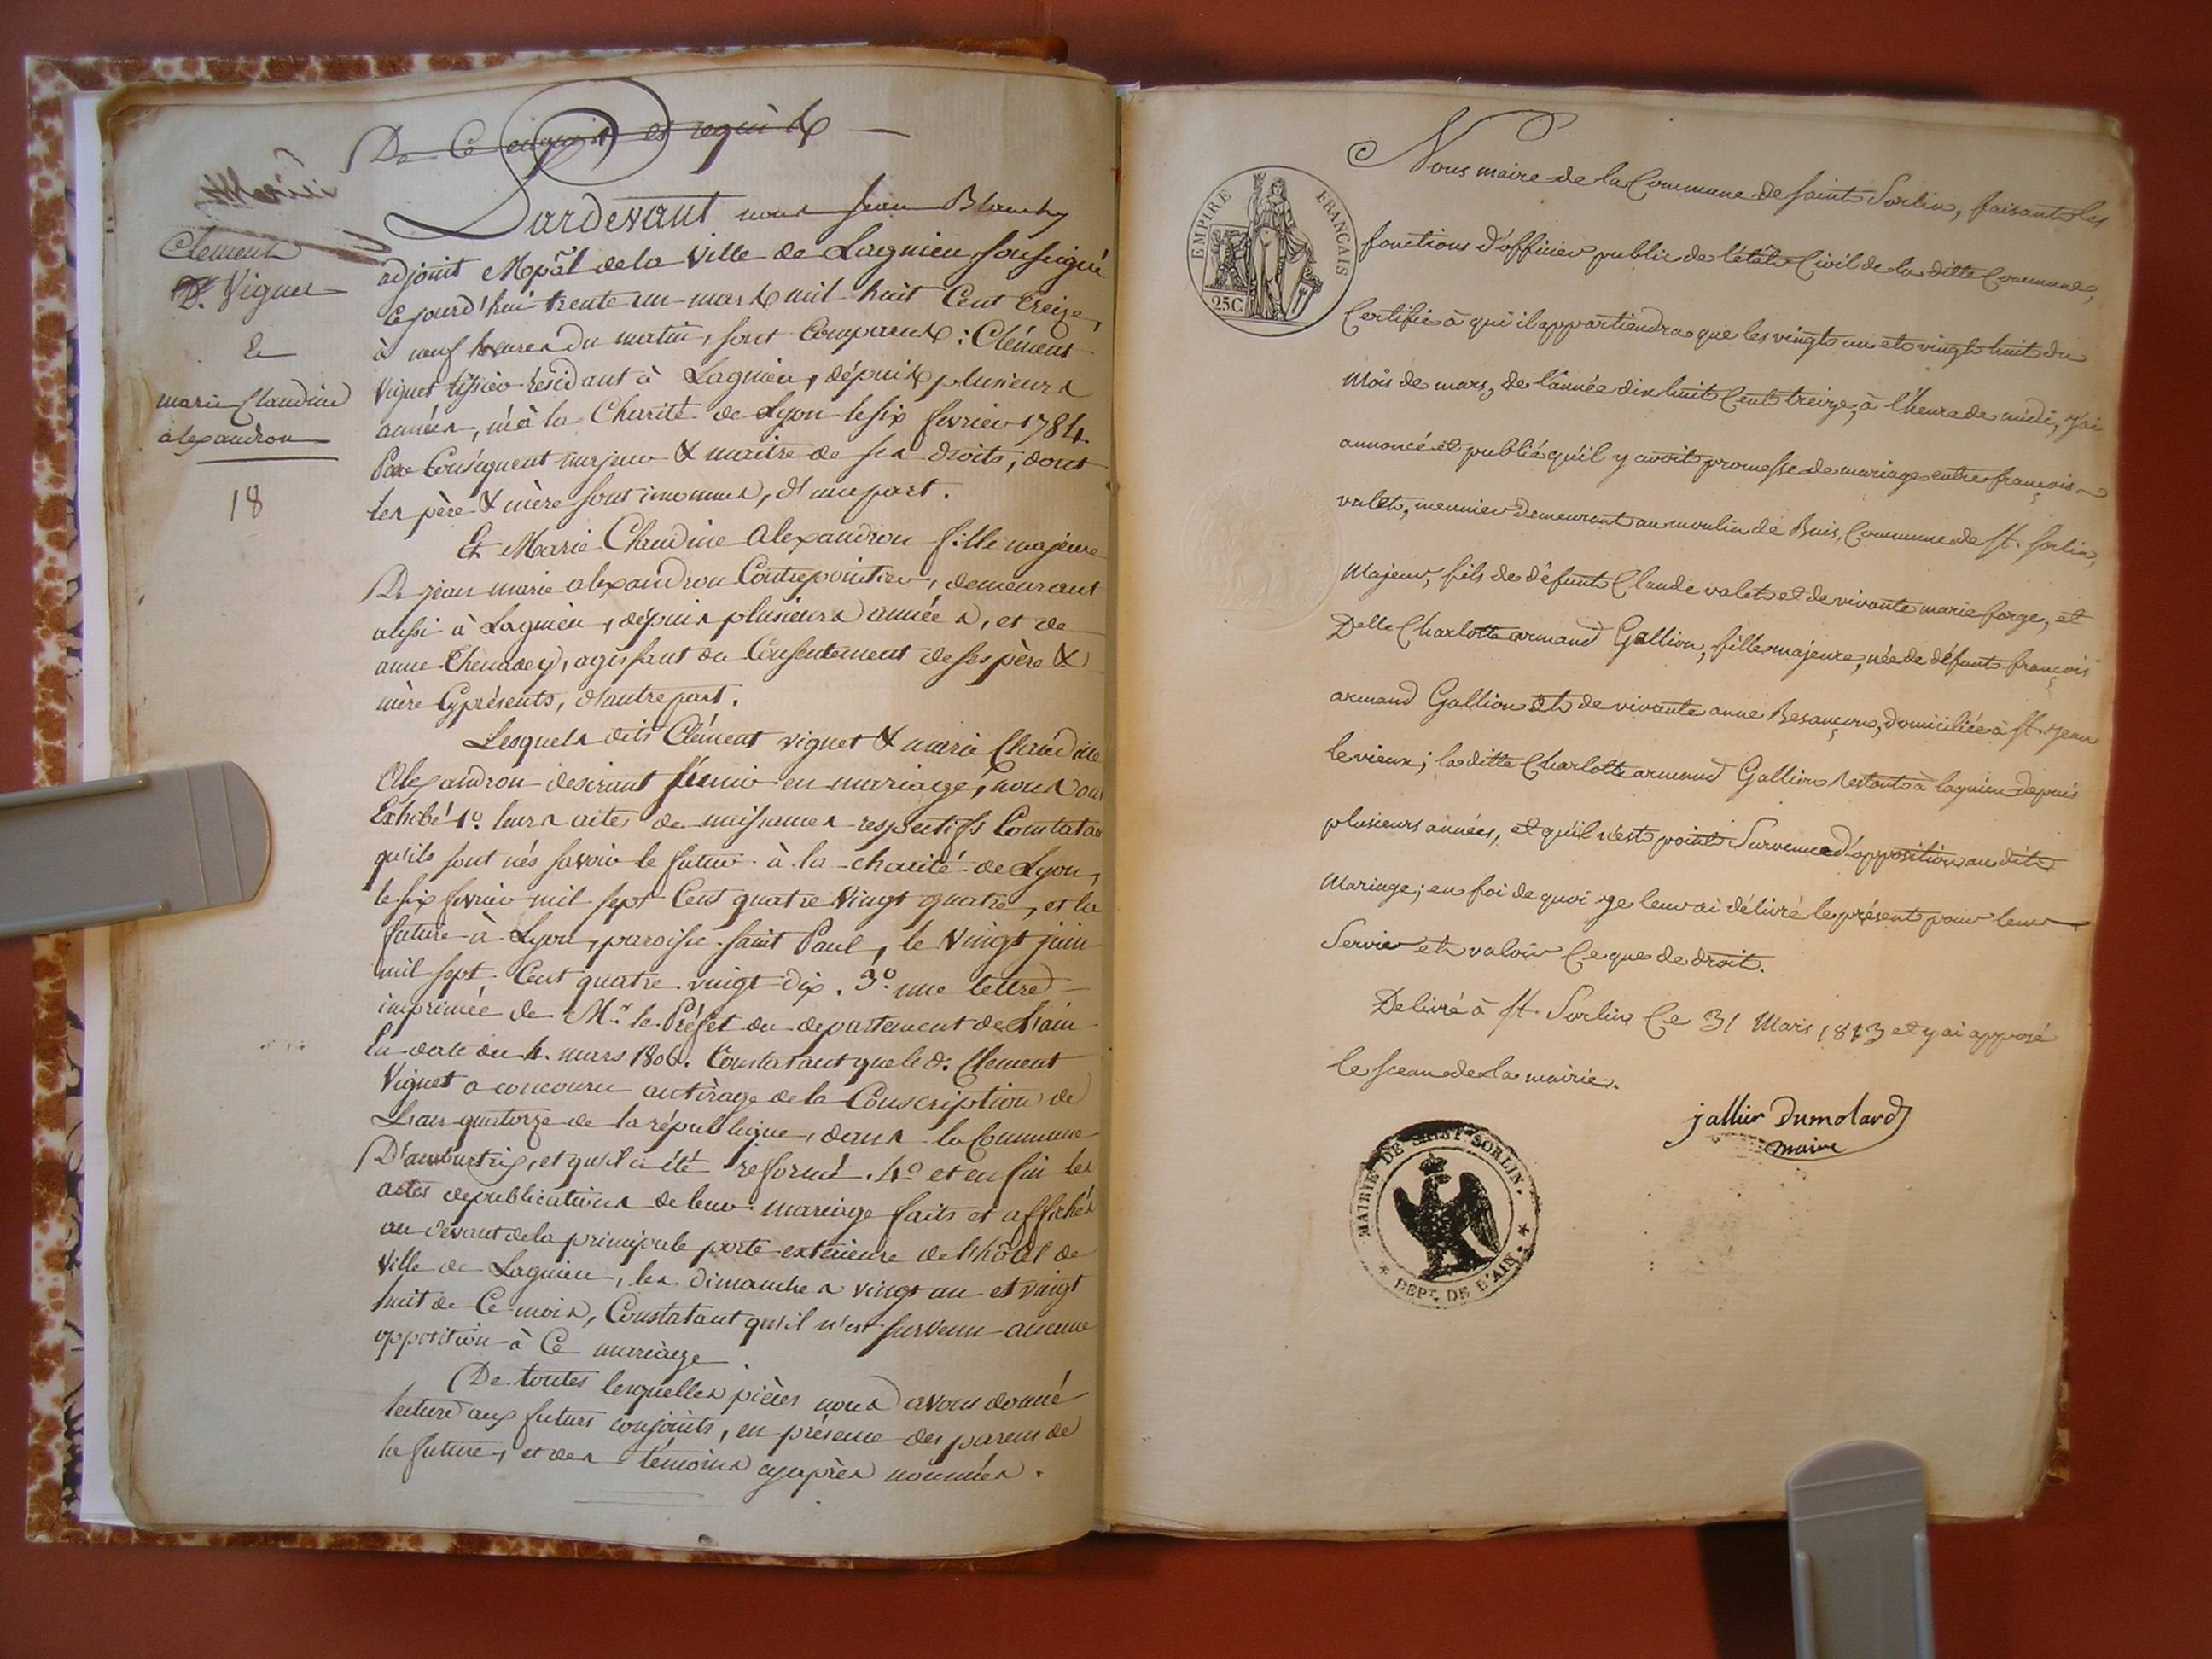 De Ce enquis et requis
Mariés
Clement
D. Viguet
&
marie Claudine
alexandron
18
Pardevant nous Jean Blanchy
adjoint Mpâl de la Ville de Lagnieu soussigné
Cejourd'hui trente un mars mil huit Cent treize,
à neuf heures du matin, sont Comparus : Clément
Viguet tissier résidant à Lagnieu, dépuis plusieurs
années, né à la Charité de Lyon le six fevrier 1784.
Par Conséquent majeur & maitre de ses droits, dont
les père & mère sont inconnus, d'une part.
Et Marie Claudine Alexandron fille majeure
De jean marie alexandron Contrepointier, demeurant
aussi à Lagnieu, dépuis plusieurs années, et de
anne, agissant du Consentement de ses père &
mère Cyprésents, d'autre part.
Lesquels dits Clément viguet & marie Claudine
Alexandron desirant s'unir en mariage, nous ont
Exhibé 1º. leurs actes de naissances respectifs Constatan
qu'ils sont nés savoir le futur à la charité de Lyon,
le six fevrier mil sept Cent quatre Vingt quatre, et la
future à Lyon, paroisse saint Paul, le Vingt juin
mil sept Cent quatre vingt dix. 3º. une lettre
imprimée de Mr. le Préfet du departement de L'ain
En date du 4. mars 1806. Constatant que le d. Clement
Viguet a concouru au tirage de la Conscription de
L'an quatorze de la république, dans la Commune
D'ambutrix, et qu'il a été reformé. 4º et enfin les
actes de publications de leur mariage faits et affichés
au devant de la principale porte extérieure de l'hôtel de
Ville de Lagnieu, les dimanches vingt un et vingt
huit de Ce mois, Constatant qu'il n'est survenu aucune
opposition à Ce mariage.
De toutes lesquelles pièces nous avons donné
lecture aux futurs conjoints, en présence des parens de
la future, et des témoins cyaprès nommés.
EMPIRE FRANÇAIS
25C
Nous maire de la Commune de saint Sorlin, faisant les
fonctions d'officier public de l'état Civil de la ditte Commune,
Certifie à qui il appartiendra que les vingt un et vingt huit du
Mois de mars, de l'année dix huit Cent treize, à l'heure de midi, j'ai
annoncé et publié qu'il y avoit promesse de mariage entre françois
valet, meunier demeurant au moulin de Buis, Commune de St. Sorlin,
Majeur, fils de défunt Claude valet et de vivante marie forge, et
Delle Charlotte armand Gallion, fille majeure, née de défunt françois
armand Gallion et de vivante anne Besançon, domiciliée à St. Jean
le vieux; la ditte Charlotte armand Gallion restant à lagnieu depuis
plusieurs années, et qu'il n'est point Survenu d'opposition au dit
Mariage; en foi de quoi je leur ai délivré le présent pour leur
Servir et valoir Ce que de droit.
Delivré à St. Sorlin Ce 31 Mars 1813 et y ai apposé
le sceau de la mairie.
jallier Dumolard
maire
MAIRIE DE SAINT SORLIN.
* DEPT. DE L'AIN. *